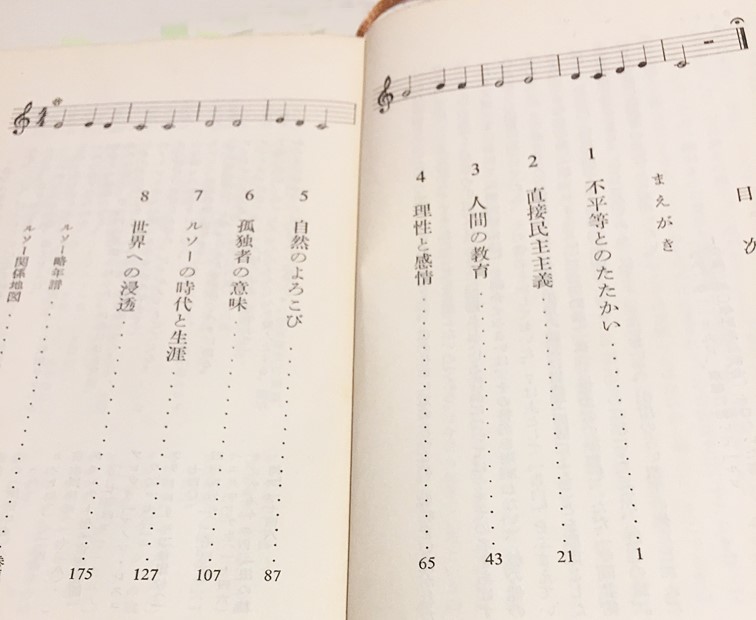 目次
まえがき
1 不平等とのたたかい 1
2 直接民主主義 21
3 人間の教育 43
4 理性と感情 65
5 自然のよろこび 87
6 孤独者の意味 107
7 ルソーの時代と生涯 127
8 世界への浸透 175
ルソー略年譜
ルソー関係地図